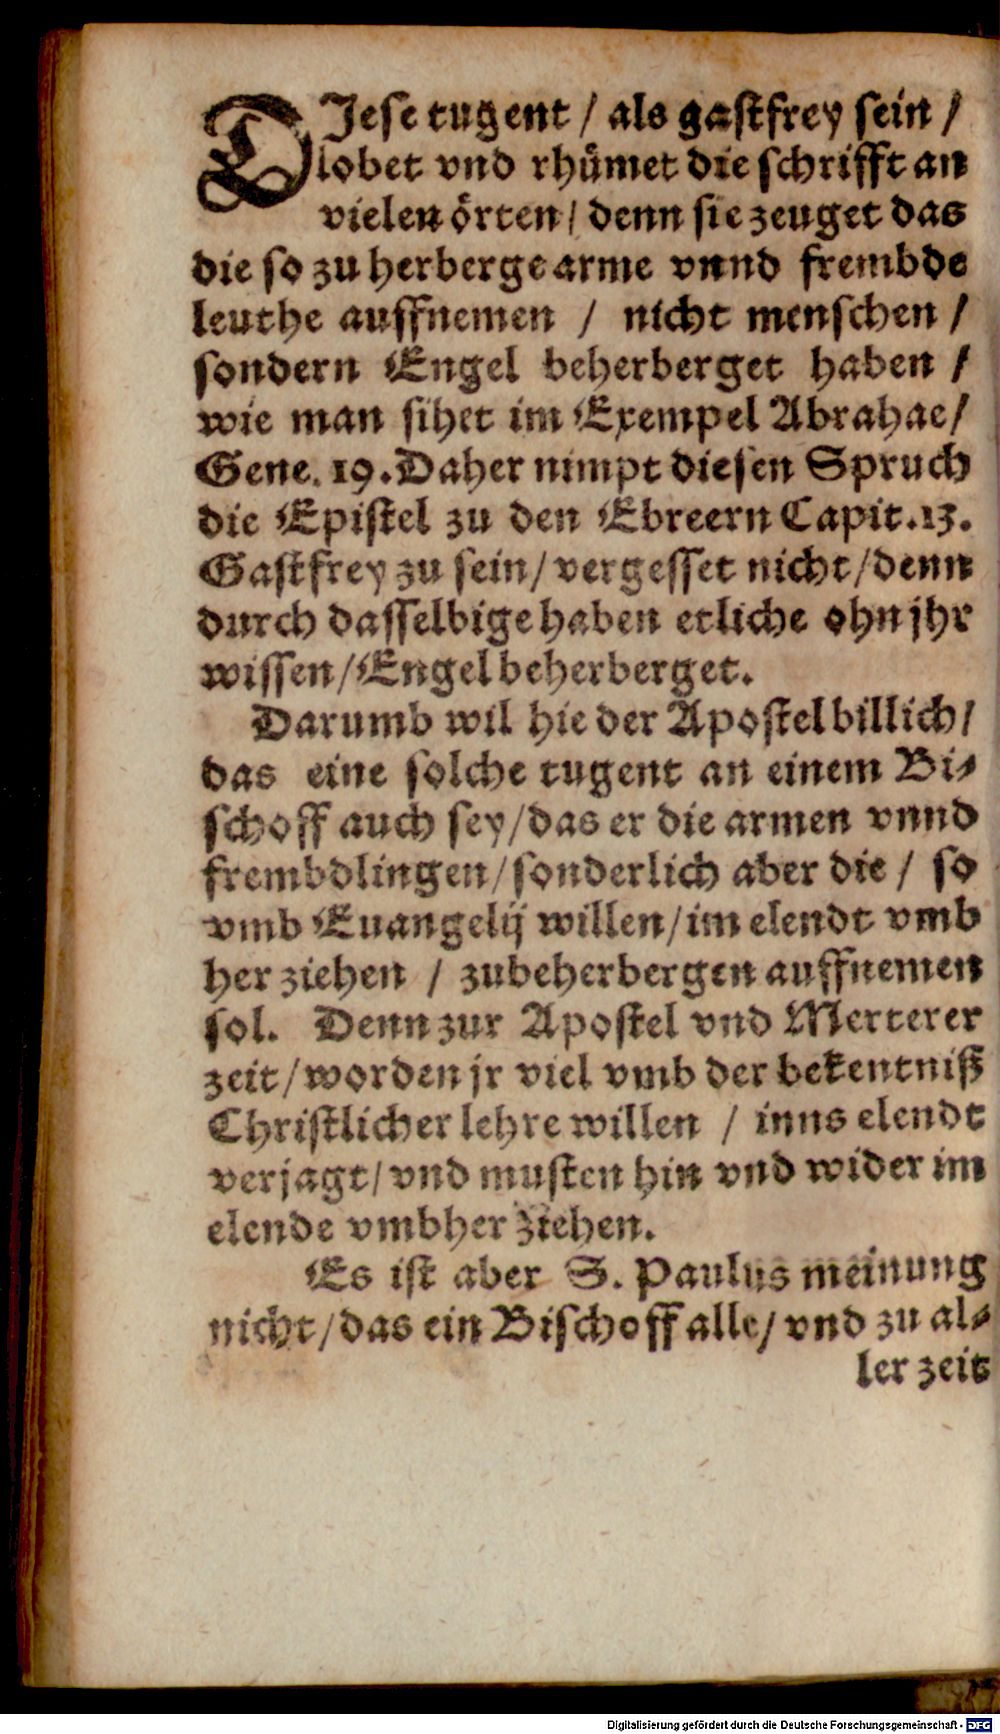 DIese tugent / als gastfrey sein /
lobet vnd rhümet die schrifft an
vielen örten / denn sie zeuget das
die so zu herberge arme vnnd frembde
leuthe auffnemen / nicht menschen /
sondern Engel beherberget haben /
wie man sihet im Exempel Abrahae /
Gene. 19. Daher nimpt diesen Spruch
die Epistel zu den Ebreern Capit. 13.
Gastfrey zu sein / vergesset nicht / denn
durch dasselbige haben etliche ohn jhr
wissen / Engel beherberget.
Darumb wil hie der Apostel billich /
das eine solche tugent an einem Bi-
schoff auch sey / das er die armen vnnd
frembdlingen / sonderlich aber die / so
vmb Euangelij willen / im elendt vmb
her ziehen / zubeherbergen auffnemen
sol. Denn zur Apostel vnd Merterer
zeit / worden jr viel vmb der bekentniß
Christlicher lehre willen / inns elendt
verjagt / vnd musten hin vnd wider im
elende vmbher ziehen.
Es ist aber S. Paulus meinung
nicht / das ein Bischoff alle / vnd zu al-
ler zeit
Digitalisierung gefördert durch die Deutsche Forschungsgemeinschaft - DFG